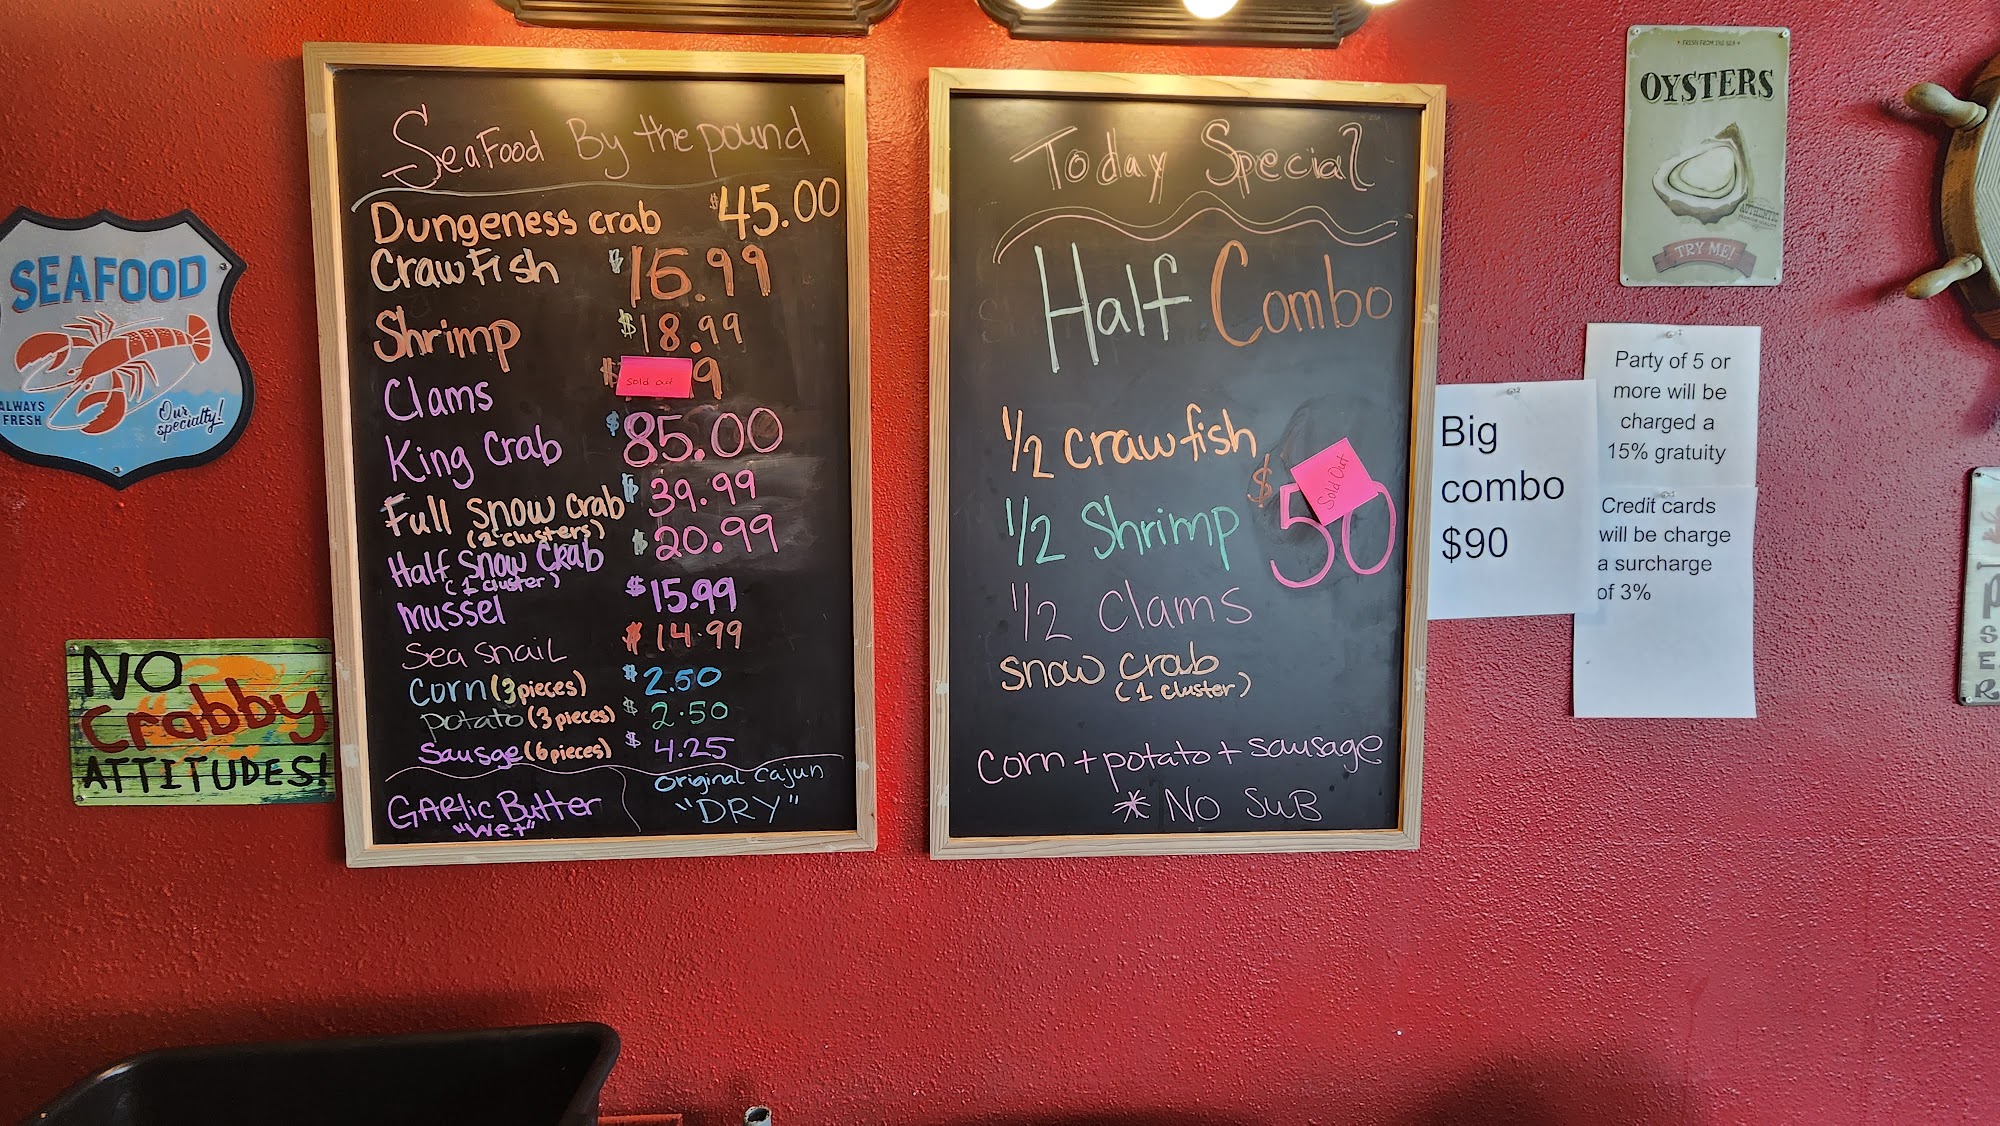 SEAFOOD
ALWAYS
FRESH
Our
specialty!
NO
Crabby
ATTITUDES!
SeaFood By the pound
Dungeness crab $45.00
CrawFish $15.99
Shrimp $18.99
Clams $ Sold out 9
King Crab $85.00
Full Snow Crab $39.99
(2 clusters)
Half Snow Crab $20.99
(1 cluster)
mussel $15.99
Sea Snail $14.99
Corn (3 pieces) $2.50
potato (3 pieces) $2.50
Sausge (6 pieces) $4.25
GARlic Butter
"Wet"
Original Cajun
"DRY"
Today Special
Half Combo
1/2 Crawfish
1/2 Shrimp
1/2 Clams
Snow Crab
(1 cluster)
$50
Sold Out
Corn + potato + sausage
* No SuB
Big
combo
$90
FRESH FROM THE SEA
OYSTERS
AUTHENTIC
TRY ME!
Party of 5 or
more will be
charged a
15% gratuity
Credit cards
will be charge
a surcharge
of 3%